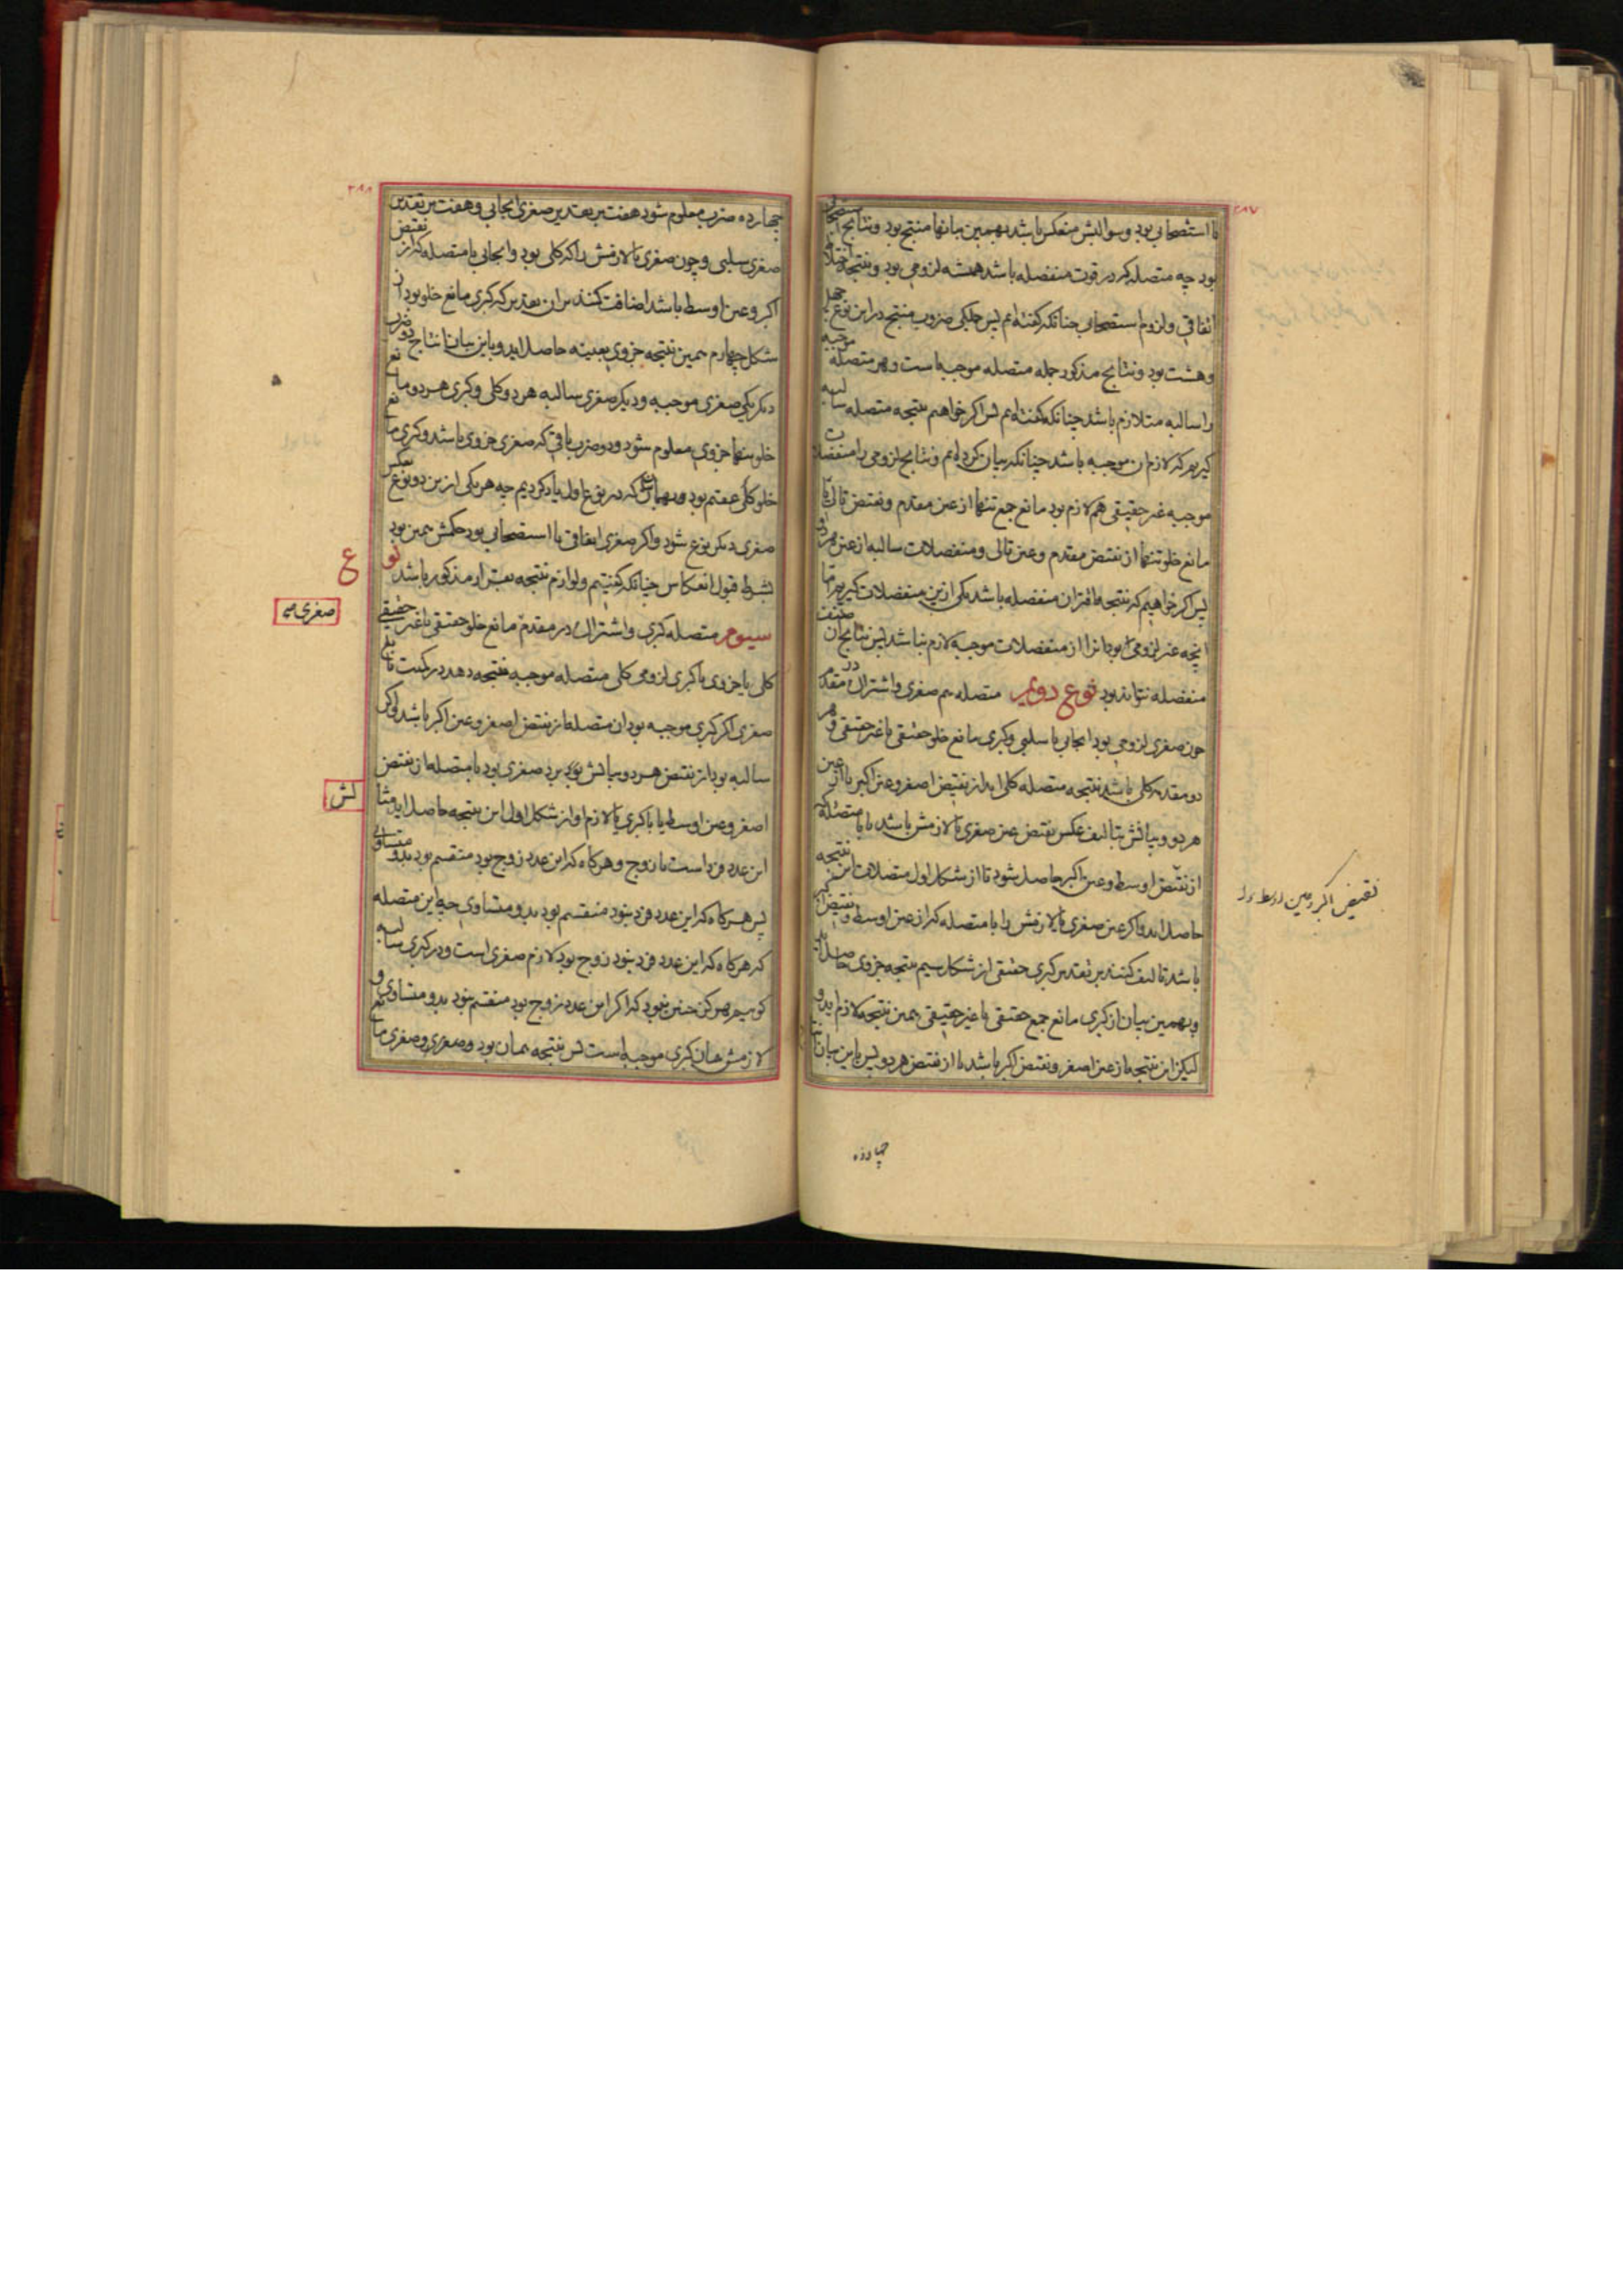 ۲۸۷
با استصحابی بود و سوالبش منعکس باشد بهمین بیانها منتج بود و نتایج استصحابی
بود چه متصله که در قوت منفصله باشد همیشه لزومی بود و نتیجه اختلاط
اتفاقی و لزوم استصحابی چنانکه گفته‌ایم پس جملگی ضروب منتج در این نوع چهل
و هشت بود و نتایج مذکور جمله متصله موجبه است و هر متصله موجبه
را سالبه متلازم باشد چنانکه گفته‌ایم پس اگر خواهیم نتیجه متصله سالبه
گیریم که لازم ان موجبه باشد چنانکه بیان کرده‌ایم و نتایج لزومی را منفصلات
موجبه غیر حقیقی هم لازم بود مانع جمع تنها از عین مقدم و نقیض تالی یا
مانع خلو تنها از نقیض مقدم و عین تالی و منفصلات سالبه از عین هر دو
پس اگر خواهیم که نتیجه اقتران منفصله باشد یکی ازین منفصلات گیریم اما
انچه غیر لزومی بود انرا از منفصلات موجبه لازم نباشد پس نتایج ان صنف
منفصله نتواند بود نوع دویم متصله هم صغری و اشتراک در مقدم
چون صغری لزومی بود ایجابی یا سلبی و کبری مانع خلو حقیقی یا غیر حقیقی و هر
دو مقدمه کلی باشد نتیجه متصله کلی اید از نقیض اصغر و عین اکبر یا از عین
هر دو و بیانش بتالیف عکس نقیض عین صغری یا لازمش باشد با متصله
از نقیض اوسط و عین اکبر حاصل شود تا از شکل اول متصلات این نتیجه
حاصل اید و اگر عین صغری یا لازمش را با متصله که از عین اوسط و نقیض اکبر
باشد تالیف کنند بر تقدیر کبری حقیقی از شکل سیم نتیجه جزوی حاصل اید
و بهمین بیان از کبری مانع جمع حقیقی یا غیر حقیقی همین نتیجه لازم اید و
لیکن این نتیجه از عین اصغر و نقیض اکبر باشد یا از نقیض هر دو پس باین بیان
نقیض اکبر و عین اوسط
چهارده
۲۸۸
چهارده ضرب معلوم شود هفت بر تقدیر صغری ایجابی و هفت بر تقدیر
صغری سلبی و چون صغری یا لازمش را که کلی بود و ایجابی با متصله که از نقیض
اکبر و عین اوسط باشد اضافت کنند بر ان تقدیر که کبری مانع خلو بود از
شکل چهارم همین نتیجه جزوی بعینه حاصل اید و باین بیان انتاج دو ضرب
دیگر یکی صغری موجبه و دیگر صغری سالبه هر دو کلی و کبری هر دو مانع
خلو تنها جزوی معلوم شود و دو ضرب باقی که صغری جزوی باشد و کبری مانع
خلو کلی عقیم بود و بهمان که در نوع اول یاد کردیم چه هر یکی ازین دو نوع بعکس
صغری دیگر نوع شود و اگر صغری اتفاقی یا استصحابی بود حکمش همین بود
بشرط قبول انعکاس چنانکه گفتیم و لوازم نتیجه بعینه ان مذکور باشد نوع
سیوم متصله کبری و اشتراک در مقدم مانع خلو حقیقی یا غیر حقیقی
صغری
کلی یا جزوی با کبری لزومی کلی متصله موجبه نتیجه دهد در کمیت تابع
صغری اگر کبری موجبه بود ان متصله از نقیض اصغر و عین اکبر باشد و اگر
سالبه بود از نقیض هر دو و بیانش برد صغری بود با متصله از نقیض
اصغر و عین اوسط با کبری یا لازم او از شکل اول این نتیجه حاصل اید مثالش
این عدد فرد است یا زوج و هرگاه که این عدد زوج بود منقسم بود بدو متساوی
پس هرگاه که این عدد فرد نبود منقسم بود بدو متساوی چه این متصله
که هرگاه که این عدد فرد نبود زوج بود لازم صغری است و در کبری سالبه
گوییم هرگز چنین نبود که اگر این عدد زوج بود منقسم نبود بدو متساوی و
لازمش همان کبری موجبه است پس نتیجه همان بود و صغری و صغری مانع